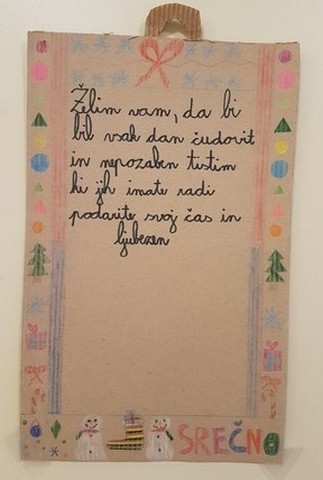 Želim vam, da bi
bil vsak dan čudovit
in nepozaben tistim
ki jih imate radi
podarite svoj čas in
ljubezen
SREČNO